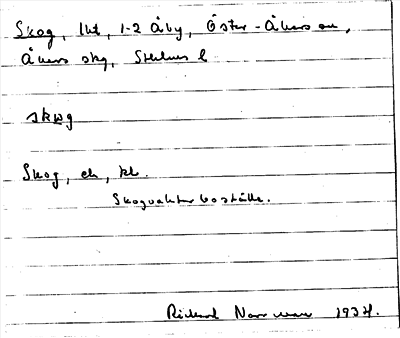 Skog, lht, 1-2 Åby, Öster-Åkers sn,
Åkers skg, Sthlms l
skωg
Skog, eh, kl.
Skogvaktarboställe.
Rickard Norrman 1934.